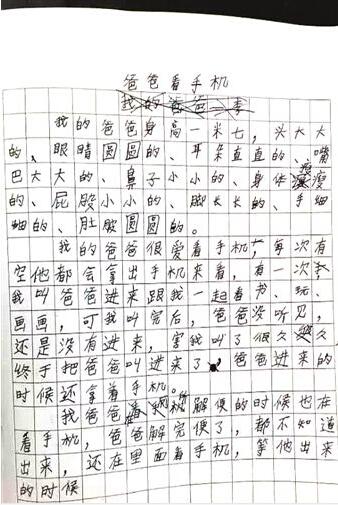 爸爸看手机
我的爸爸身高一米七,头大大
的、眼睛圆圆的、耳朵直直的、嘴
巴大大的、鼻子小小的、身体瘦瘦
的、屁股小小的、脚长长的、手细
细的、肚股圆圆的。
我的爸爸很爱看手机,每次有
空他都会拿出手机来看,有一次
我叫爸爸进来跟我一起看书、玩、
画画,可我叫完后,爸爸没听见,
还是没有进来,害我叫了很久
终于把爸爸叫进来了,爸爸进来的
时候还拿着手机。
我爸爸解便的时候也在
看手机,爸爸解完便了,都不知道
出来,还在里面看手机,等他出来
的时候